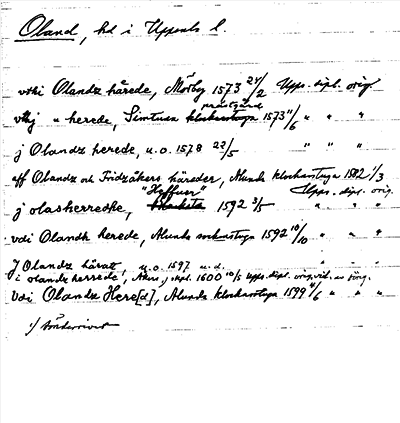 Oland, hd i Uppsala l.
vthi Olandz härede, Mörby 1573 24/2 Upps. dipl. orig.
prästgård
vthj " herede, Simtuna klockarstuga 1573 11/6 " " "
j Olandz herede, u.o. 1578 22/5 " " "
aff Olandz och Fridzåkers häreder, Alunda klockarstuga 1582 1/3
"Hyffner" Upps. dipl. orig.
j olasherredhe, 1592 3/5 " " "
vdi Olandh herede, Alunda sockenstuga 1592 10/10 " " "
J Olandz häratt, u.o. 1597 u.d. " " "
i olandz herrede, 1600 10/5 Upps. dipl. orig.
vdi Olandz Here[d], Alunda klockarstuga 1599 4/6 " " "
1) Sönderrivet